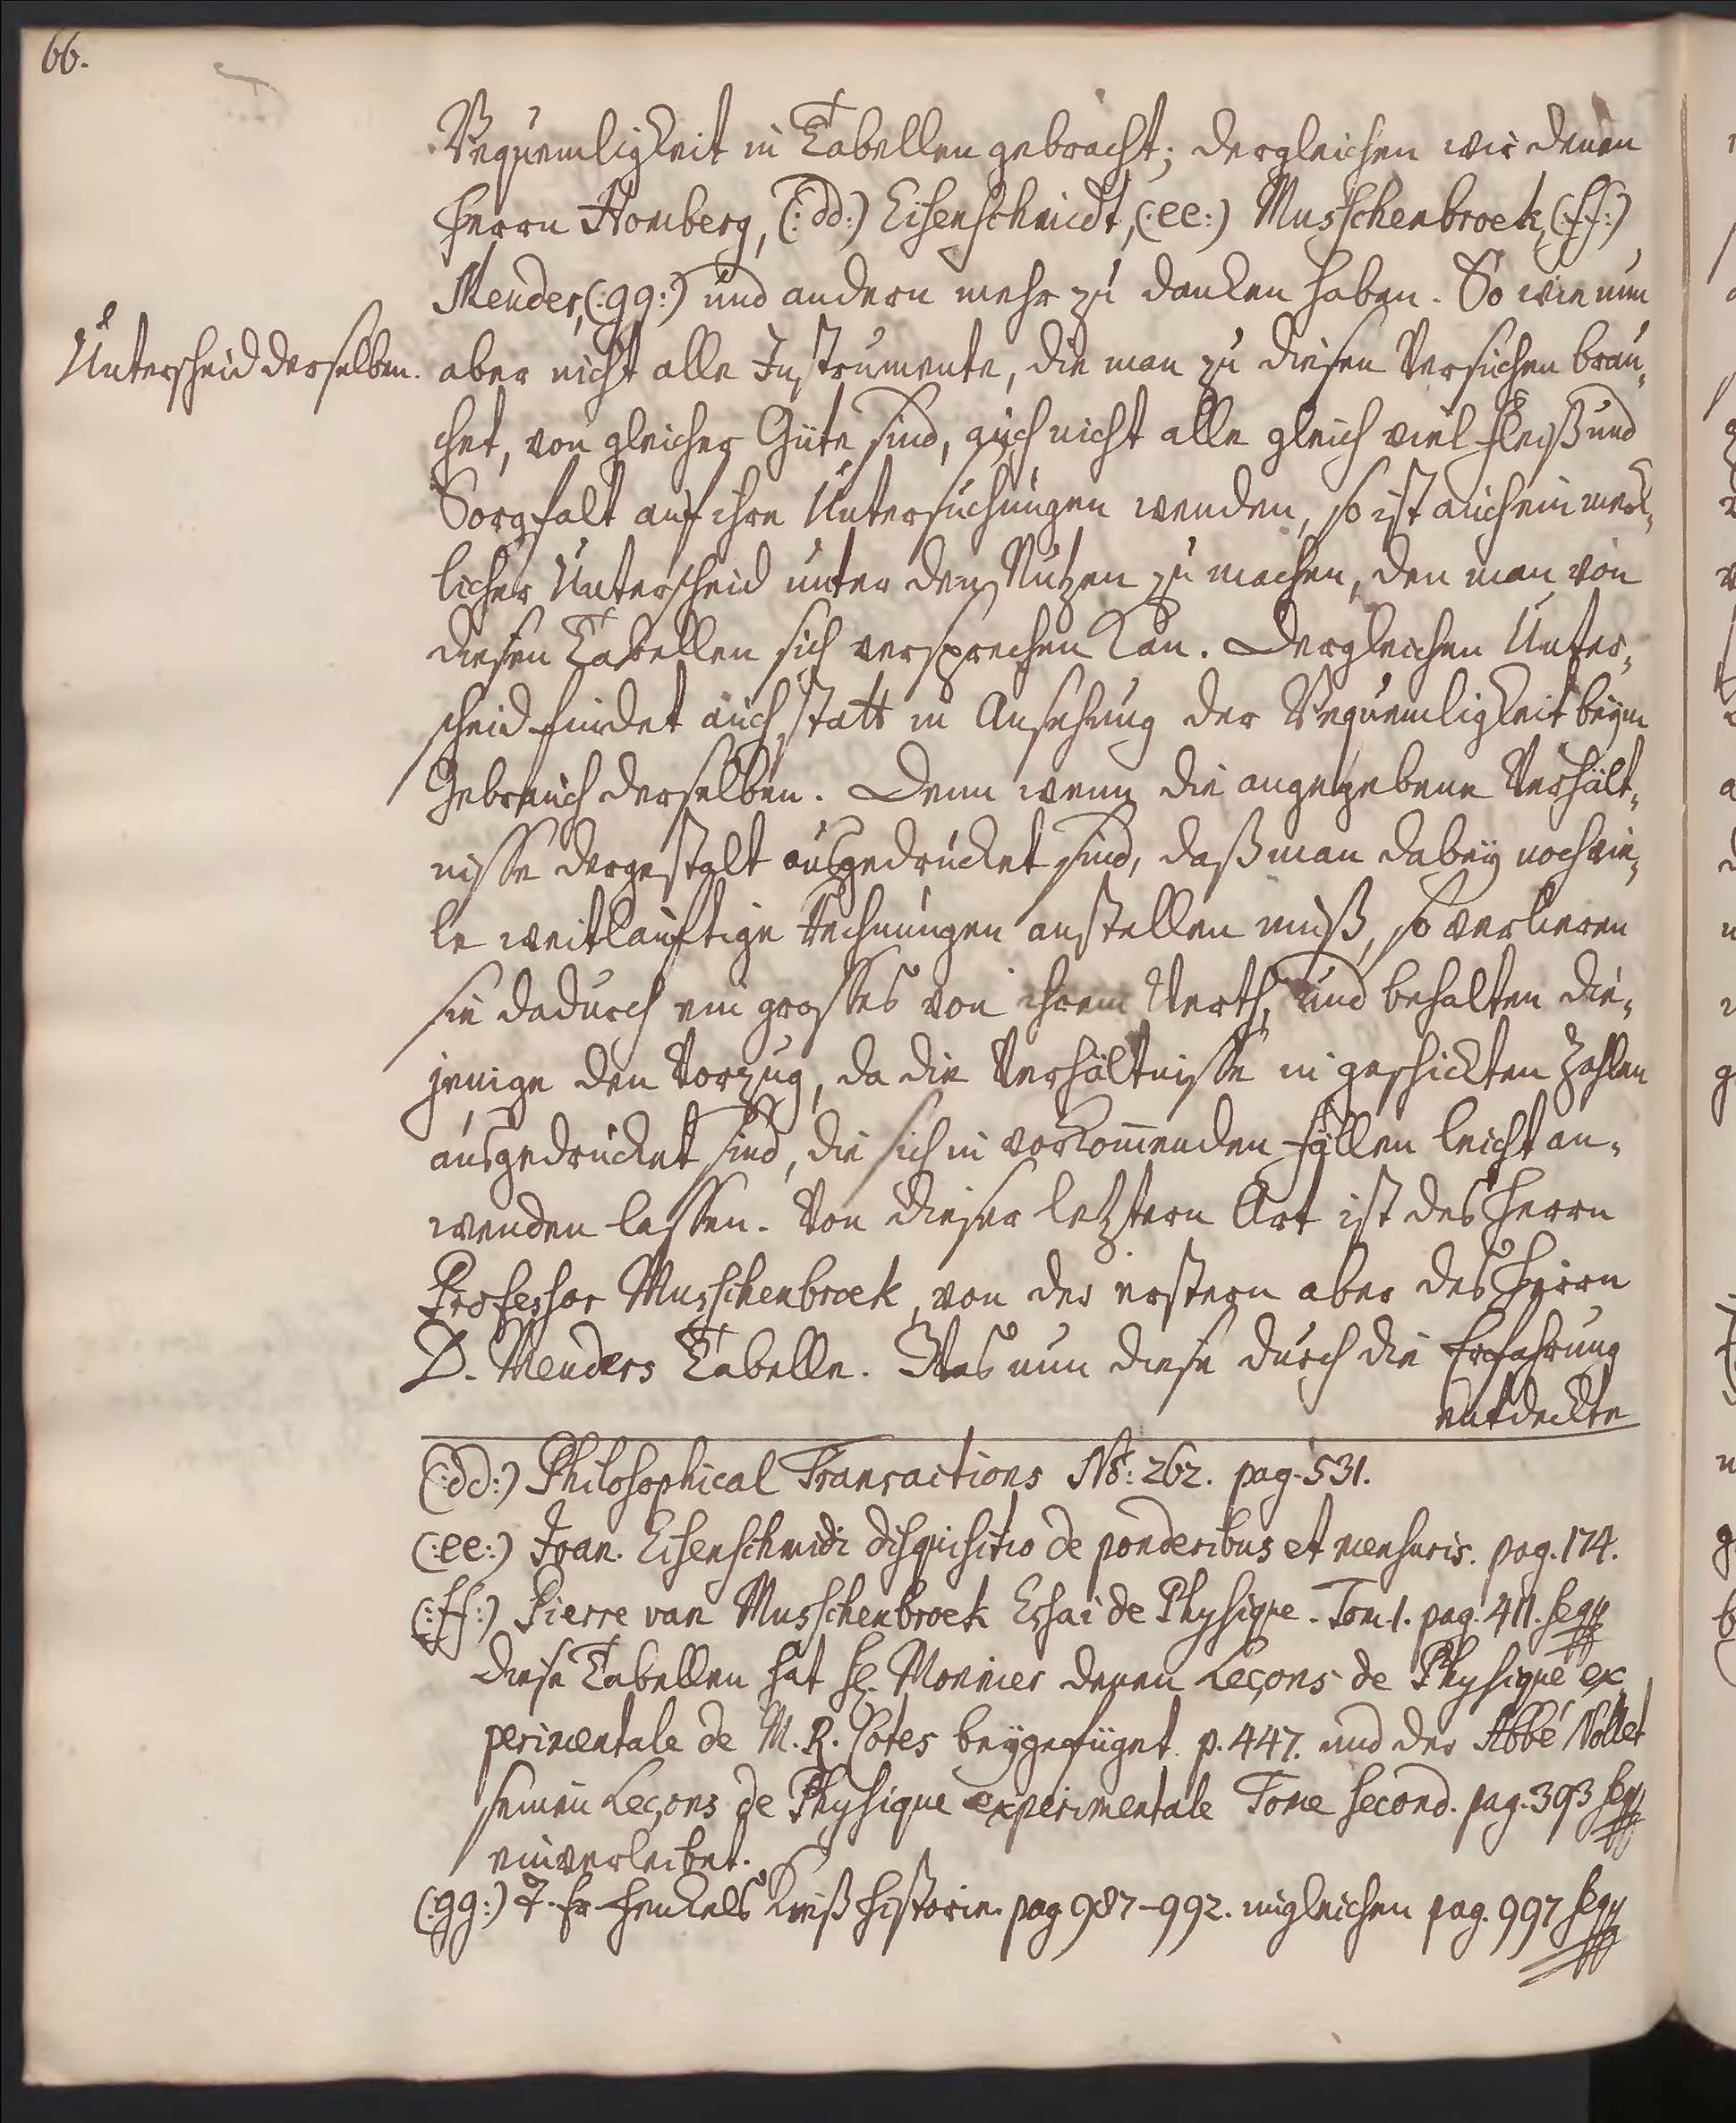 66.
Bequemligkeit in Tabellen gebracht; dergleichen wir denen
Herrn Homberg, (:dd:) Eisenschmidt, (:ee:) Musschenbroek, (:ff:)
Meuder, (:gg:) und andern mehr zu dancken haben. So wie nun
Unterscheid derselben.
aber nicht alle Instrumente, die man zu diesen Versuchen brau„
chet, von gleicher Güte sind, auch nicht alle gleich viel Fleiß und
Sorgfalt auf ihre Untersuchungen wenden, so ist auch ein merck„
licher Unterscheid unter den Nutzen zu machen, den man von
diesen Tabellen sich versprechen kan. Dergleichen Unter„
scheid findet auch statt in Ansehung der Bequemligkeit beym
Gebrauch derselben. Denn wenn die angegebene Verhält„
nisse dergestalt ausgedrücket sind, daß man dabey noch vie„
le weitläuftige Rechnungen anstellen muß, so verlieren
sie dadurch ein grosses von ihrem Werth, und behalten die„
jenige den Vorzug, da die Verhältnisse in geschickten Zahlen
ausgedrücket sind, die sich in vorkommenden Fällen leicht an„
wenden lassen. Von dieser letztern Art ist des Herrn
Professor Musschenbroek, von der erstern aber des Herrn
D. Meuders Tabelle. Was nun diese durch die Erfahrung
entdeckte
(:dd:) Philosophical Transactions No: 262. pag. 531.
(:ee:) Joan. Eisenschmidi disquisitio de ponderibus et mensuris. pag. 174.
(:ff:) Pierre van Musschenbroek Essai de Physique. Tom. 1. pag. 411. seqq
diese Tabellen hat H. Monnier denen Leçons de Physique ex„
perimentale de M. R. Cotes beygefüget. p. 447. und der Abbé Nollet
seinen Leçons de Physique experimentale Tome second. pag. 393 seqq
einverleibet.
(:gg:) J. Fr. Henckels Kieß Historie. pag 987-992. ingleichen pag. 997 seqq